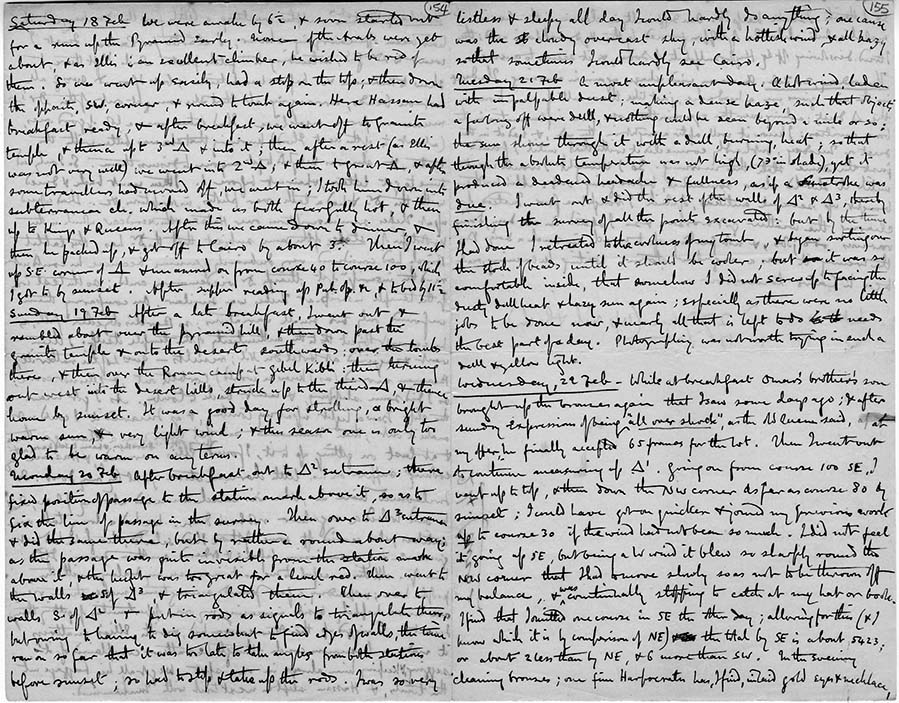 154
Saturday 18 Feb We were awake by 6 & soon started out
for a run up the Pyramid early. None of the Arabs were yet
about, & as Ellis is an excellent climber, he wished to be rid of
them. So we went up easily, had a stop on the top, & then down
the opposite, SW, corner, & round to tomb again. Here Hassan had
breakfast ready; & after breakfast, we went off to granite
temple, & then up 3rd Δ & into it; then after a rest (as Ellis
was not very well) we went into 2nd Δ, & then to great Δ, & after
some travellers had moved off, we went in; I took him down into
subterranean ch. which made us both fearfully hot, & then
up to Kings & Queens. After this we came down to dinner, &
then he packed up, & got off to Cairo by about 3. Then I went
up SE. corner of Δ & measured on from course 40 to course 100, which
I got to by sunset. After supper reading up &c, & to bed by 11
Sunday 19 Feb After a late breakfast, I went out, &
rambled about over the Pyramid hill, & then down past the
granite temple & on to the desert southwards: over the tombs
there, & then over the Roman camp at Gebel Kibli: then turning
out west into the desert hills, struck up to the third Δ, & thence
home by sunset. It was a good day for strolling, a bright
warm sun, & very light wind; & this season one is only too
glad to be warm on any terms.
Monday 20 Feb After breakfast out to Δ2 entrance; there
fixed position of passage to the station mark above it, so as to
fix the line of passage in the survey. Then over to Δ3 entrance
& did the same there, but by rather a round about way;
as the passage was quite invisible from the station mark
above it, & the height was too great for a level rod. Then went to
the walls S of Δ3 & triangulated them. Then over to
walls S. of Δ2 & put in rods as signals to triangulate them;
but owing to having to dig somewhat to find edges of walls, the time
ran on so far that it was too late to take angles from both stations
before sunset; so had to stop & take up the rods. I was so very
155
listless & sleepy all day I could hardly do anything; one cause
was the cloudy overcast sky, with a hottish wind, & all hazy
so that sometimes I could hardly see Cairo.
Tuesday 21 Feb A most unpleasant day. A hot wind, laden
with impalpable dust; making a dense haze, such that objects
a furlong off were dull, & nothing could be seen beyond a mile or so;
the sun shone through it with a dull, burning, heat; so that
though the absolute temperature was not high, (73° in shade), yet it
produced a deadened headache & fullness, as if a sunstroke was
due. I went out & did the rest of the walls of Δ2 & Δ3, thereby
finishing the survey of all the points excavated: but by the time
I had done I retreated to the coolness of my tomb, & began sorting over
the stock of beads, until it should be cooler, but it was so
comfortable inside, that somehow I did not screw up to facing the
dusty dull heat & hazy sun again; especially as there were no little
jobs to be done now, & nearly all that is left to do needs
the best part of a day. Photographing was not worth trying in such a
dull & yellow light.
Wednesday, 22 Feb - While at breakfast Omar's brother's son
brought up the bronzes again that I saw some days ago; & after
sundry expressions of being "all over shook", as the old Queen said, at
my offer, he finally accepted 65 francs for the lot. Then I went out
to continue measuring up Δ1. Going on from course 100 SE, I
went up to top, & then down the NW corner as far as course 80 by
sunset; I could have got on quicker & joined my previous work
up to course 30 if the wind had not been so much. I did not feel
it going up SE, but being a W wind it blew so sharply round the
NW corner that I had to move slowly so as not to be thrown off
my balance, & was continually stopping to catch at my hat or book.
I find that I omitted one course in SE the other day; allowing for this (& I
know which it is by comparison of NE) the total by SE is about 5423,
or about 2 less than by NE, & 6 more than SW. In the evening
cleaning bronzes; one fine Harpocrates has, I find, inlaid gold eyes & necklace,